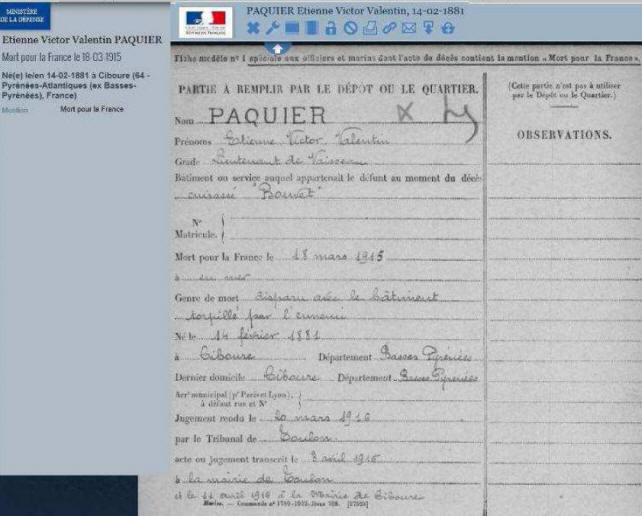 MINISTÈRE
DE LA DÉFENSE
Etienne Victor Valentin PAQUIER
Mort pour la France le 18-03-1915
Né(e) le/en 14-02-1881 à Ciboure (64 -
Pyrénées-Atlantiques (ex Basses-
Pyrénées), France)
Mention Mort pour la France
PAQUIER Etienne Victor Valentin, 14-02-1881
Fiche modèle n° 1 spéciale aux officiers et marins dont l'acte de décès contient la mention « Mort pour la France ».
PARTIE À REMPLIR PAR LE DÉPÔT OU LE QUARTIER.
(Cette partie n'est pas à utiliser
par le Dépôt ou le Quartier.)
OBSERVATIONS.
Nom PAQUIER
Prénoms Etienne Victor Valentin
Grade Lieutenant de Vaisseau
Bâtiment ou service auquel appartenait le défunt au moment du décès
cuirassé "Bouvet"
N°
Matricule.
Mort pour la France le 18 mars 1915
à en mer
Genre de mort disparu avec le bâtiment
torpillé par l'ennemi
Né le 14 février 1881
à Ciboure Département Basses Pyrénées
Dernier domicile Ciboure Département Basses Pyrénées
Arrt municipal (pr Paris et Lyon),
à défaut rue et N°
Jugement rendu le 20 mars 1916
par le Tribunal de Toulon
acte ou jugement transcrit le 3 avril 1916
à la mairie de Toulon
et le 11 avril 1916 à la Mairie de Ciboure
Marine. — Commande n°